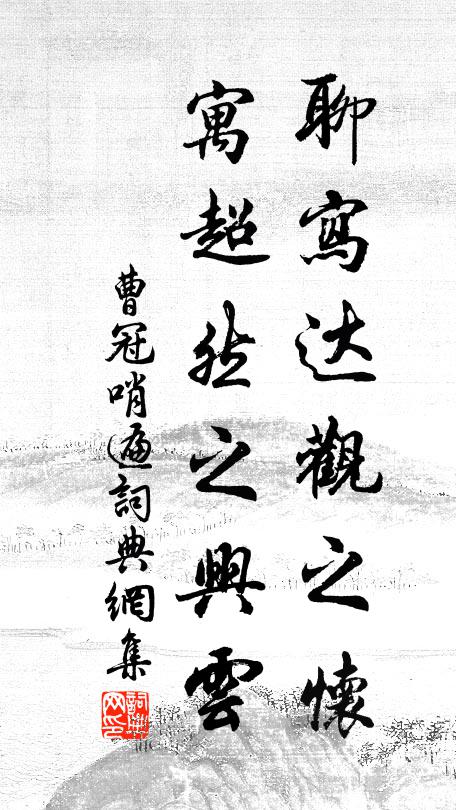 聊寫达觀之懷
寓超然之興雲
曹冠哨遍詞典網集